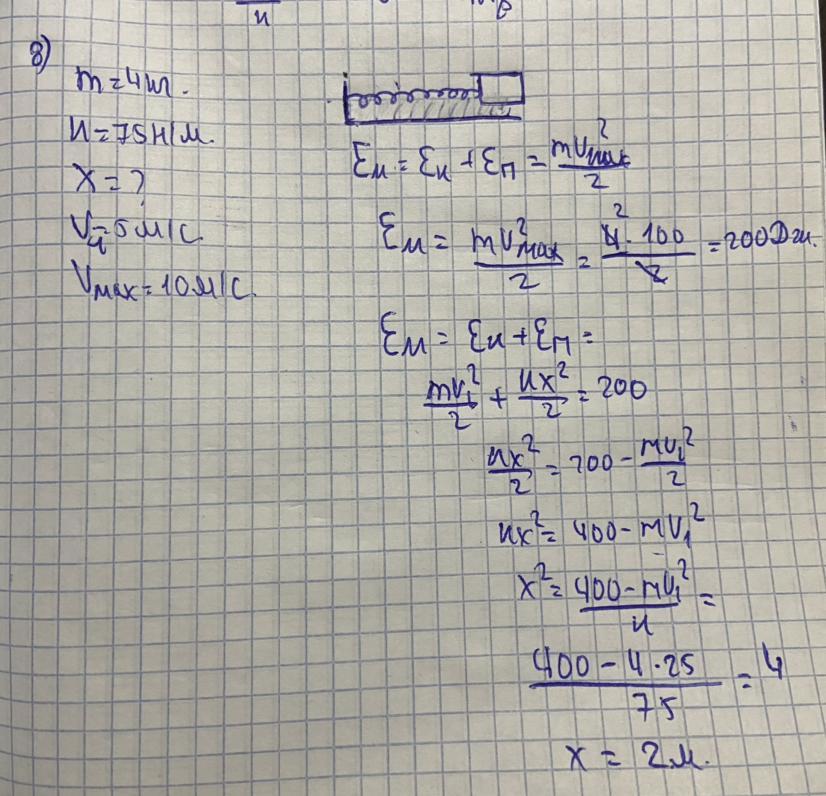 и в
8)
m = 4кг.
к = 75 Н/м.
x = ?
V₁ = 5 м/с.
Vмах = 10 м/с.
Ɛм = Ɛк + Ɛп = mVмах²/2
Ɛм = mVмах²/2 = 4² · 100/2 = 200Дж.
Ɛм = Ɛк + Ɛп =
mV₁²/2 + кx²/2 = 200
кx²/2 = 200 - mV₁²/2
кx² = 400 - mV₁²
x² = 400 - mV₁²/к =
400 - 4 · 25/75 = 4
x = 2м.